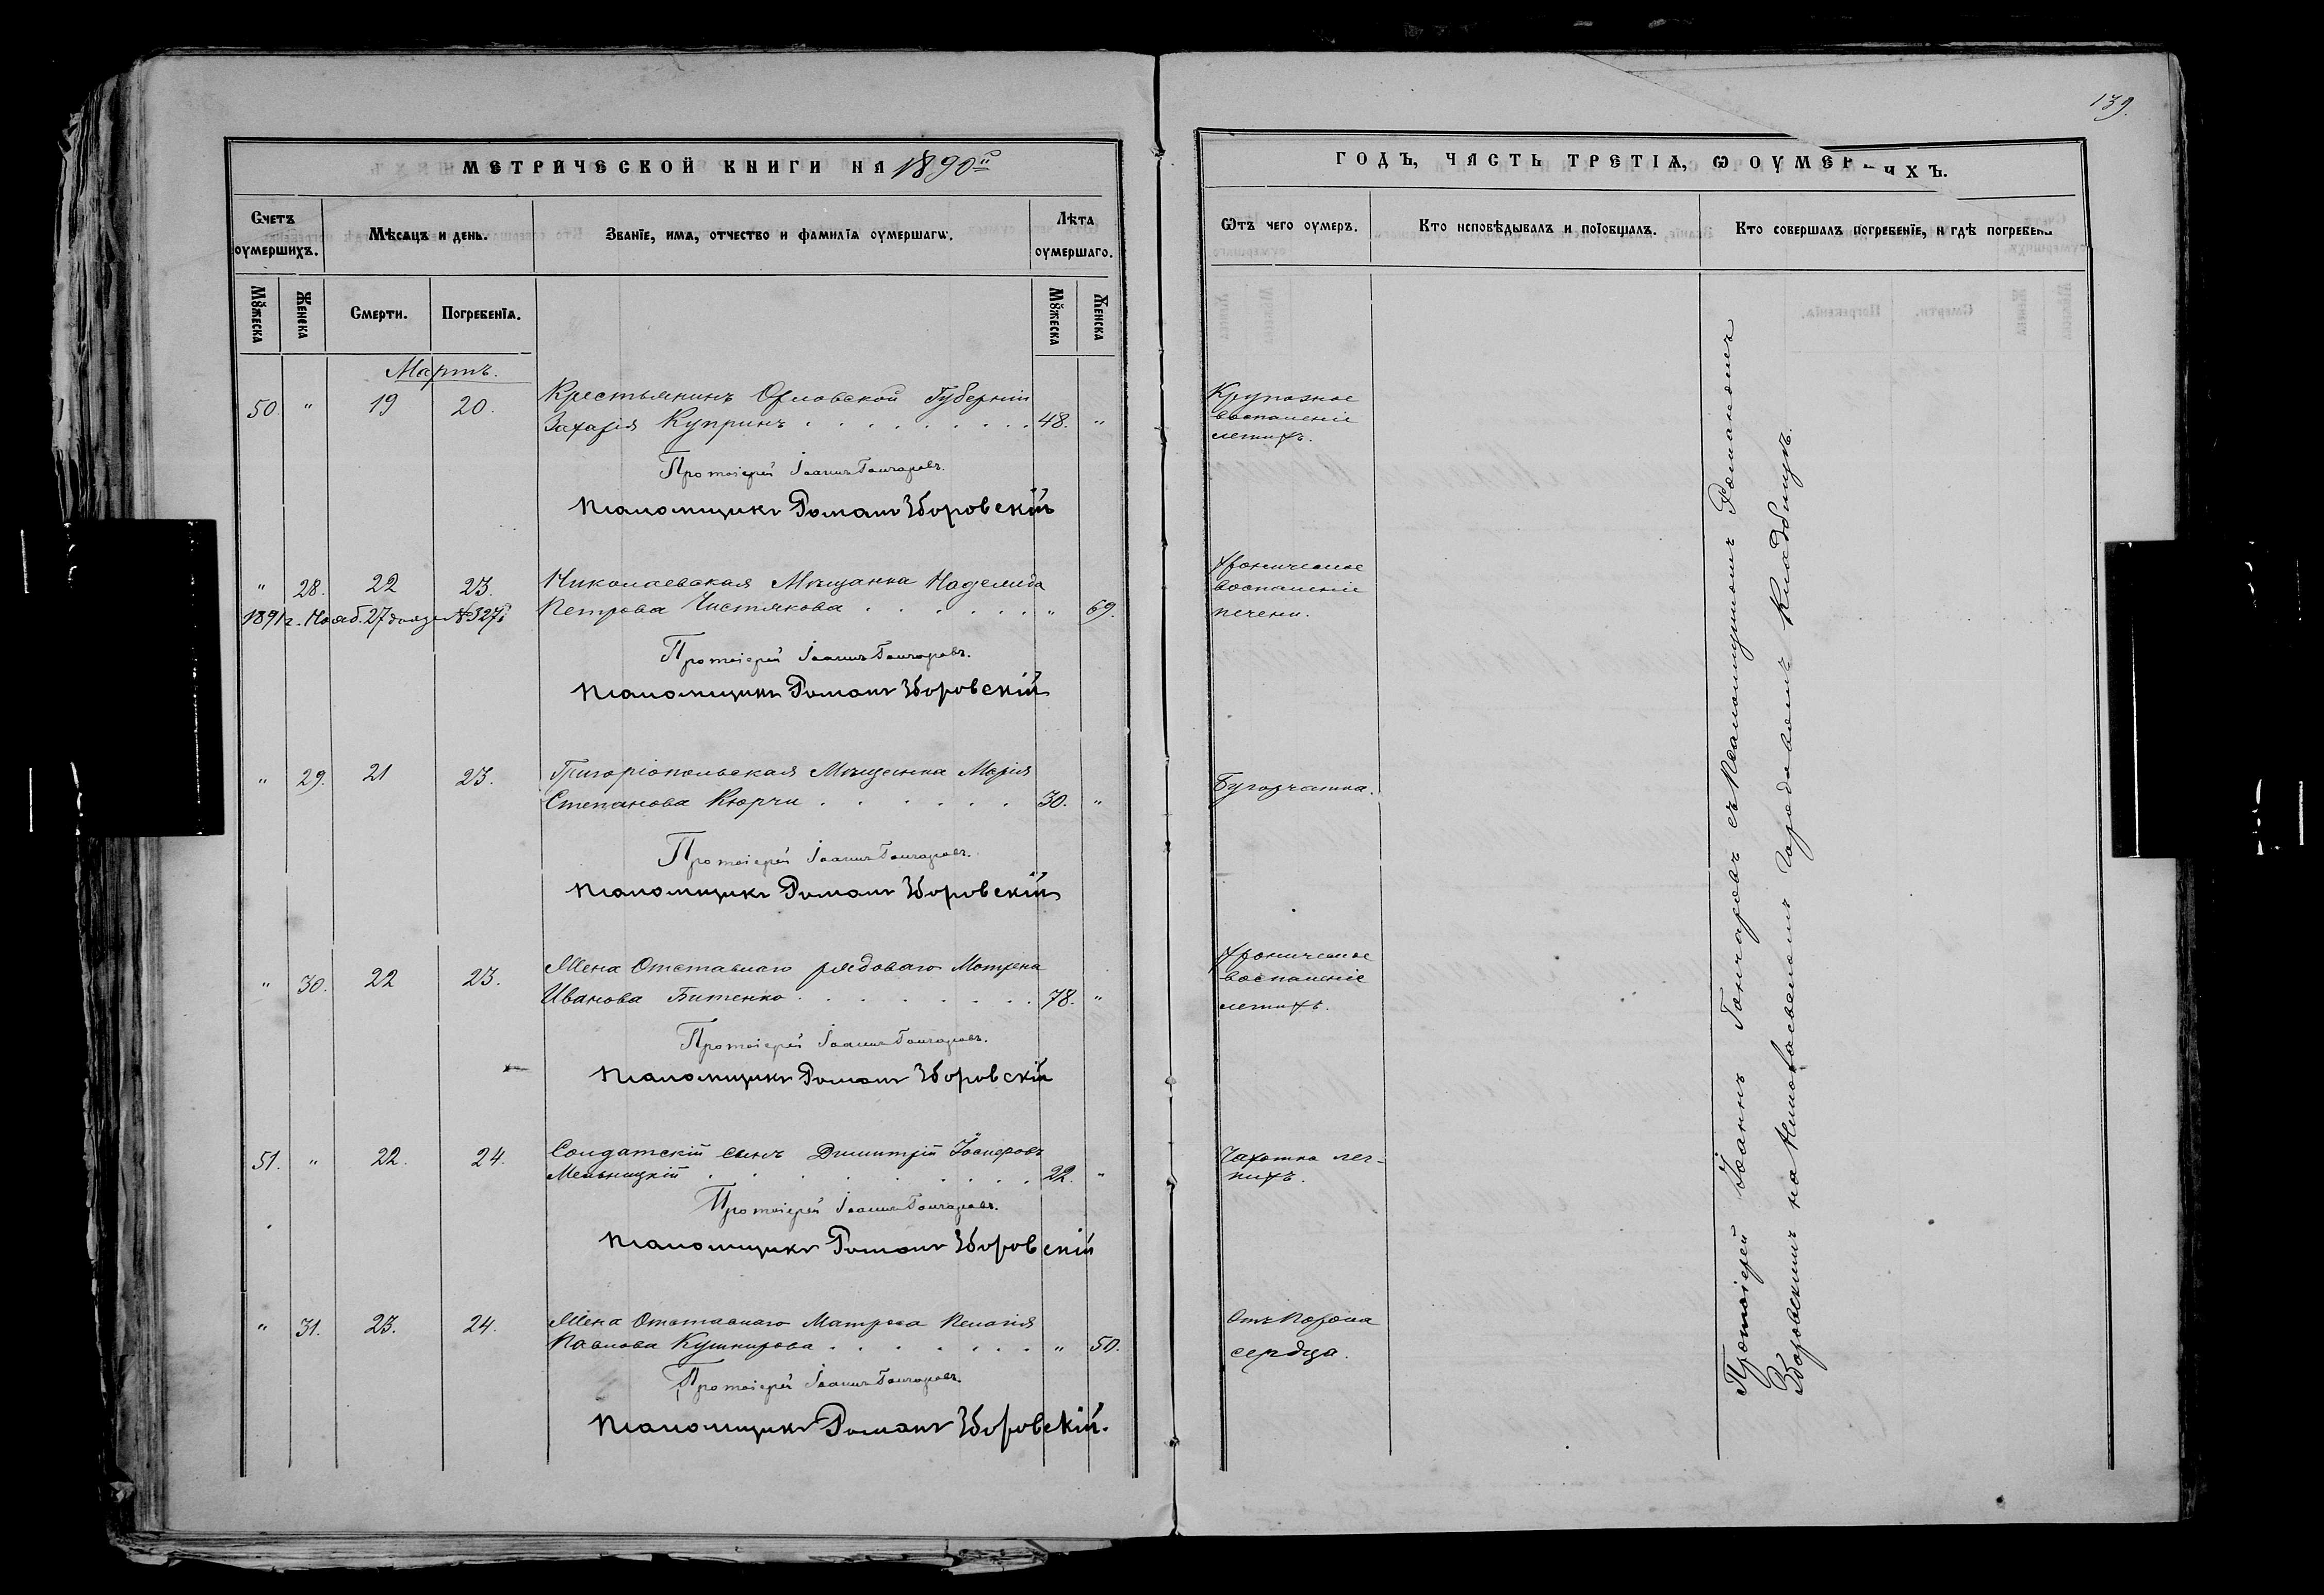 139.
МЕТРИЧЕСКОЙ КНИГИ НА 1890й
Счетъ оумершихъ.
Мѣсѧцъ и день.
Званїе, имѧ, отчество и фамилїѧ оумершагѡ.
Лѣта оумершаго.
Мꙋжеска
Женска
Смерти.
Погребенїѧ.
Мꙋжеска
Женска
Мартъ.
50. " 19 20. Крестьянинъ Орловской Губерніи
Захарія Купринъ . . . . . . . . . 48. "
Протоіерей Іоаннъ Гончаровъ.
Псаломщикъ Романъ Зборовскій
" 28. 22 23. Николаевская Мѣщанка Надежда
1891 г. Нояб. 27 №327
Петрова Чистякова . . . . . . " 69.
Протоіерей Іоаннъ Гончаровъ.
Псаломщикъ Романъ Зборовскій
" 29. 21 23. Григоріопольская Мѣщанка Марія
Степанова Кюрчи . . . . . . 30. "
Протоіерей Іоаннъ Гончаровъ.
Псаломщикъ Романъ Зборовскій
" 30. 22 23. Жена Отставнаго рядоваго Матрена
Иванова Битенко . . . . . . . . 78. "
Протоіерей Іоаннъ Гончаровъ.
Псаломщикъ Романъ Зборовскій
51. " 22. 24. Солдатскій сынъ Димитрій
Мельницкій . . . . . . . . . 22. "
Протоіерей Іоаннъ Гончаровъ.
Псаломщикъ Романъ Зборовскій
" 31. 23. 24. Жена Отставнаго Матроса Пелагія
Павлова Кушнирова . . . . . . . " 50.
Протоіерей Іоаннъ Гончаровъ.
Псаломщикъ Романъ Зборовскій.
ГОДЪ, ЧАСТЬ ТРЕТІѦ, Ѡ ОУМЕР ИХЪ.
Ѿтъ чего оумеръ.
Кто исповѣдывалъ и поїобщалъ.
Кто совершалъ погребенїе, и гдѣ погребены
Крупозное
воспаленіе
легкихъ.
Хроническое
воспаленіе
печени.
Бугорчатка.
Хроническое
воспаленіе
легкихъ.
Чахотка лег-
кихъ.
Отъ Порока
сердца.
Протоіерей Іоаннъ Гончаровъ съ Псаломщикомъ Романомъ
Зборовскимъ на Николаевскомъ городовомъ кладбищѣ.